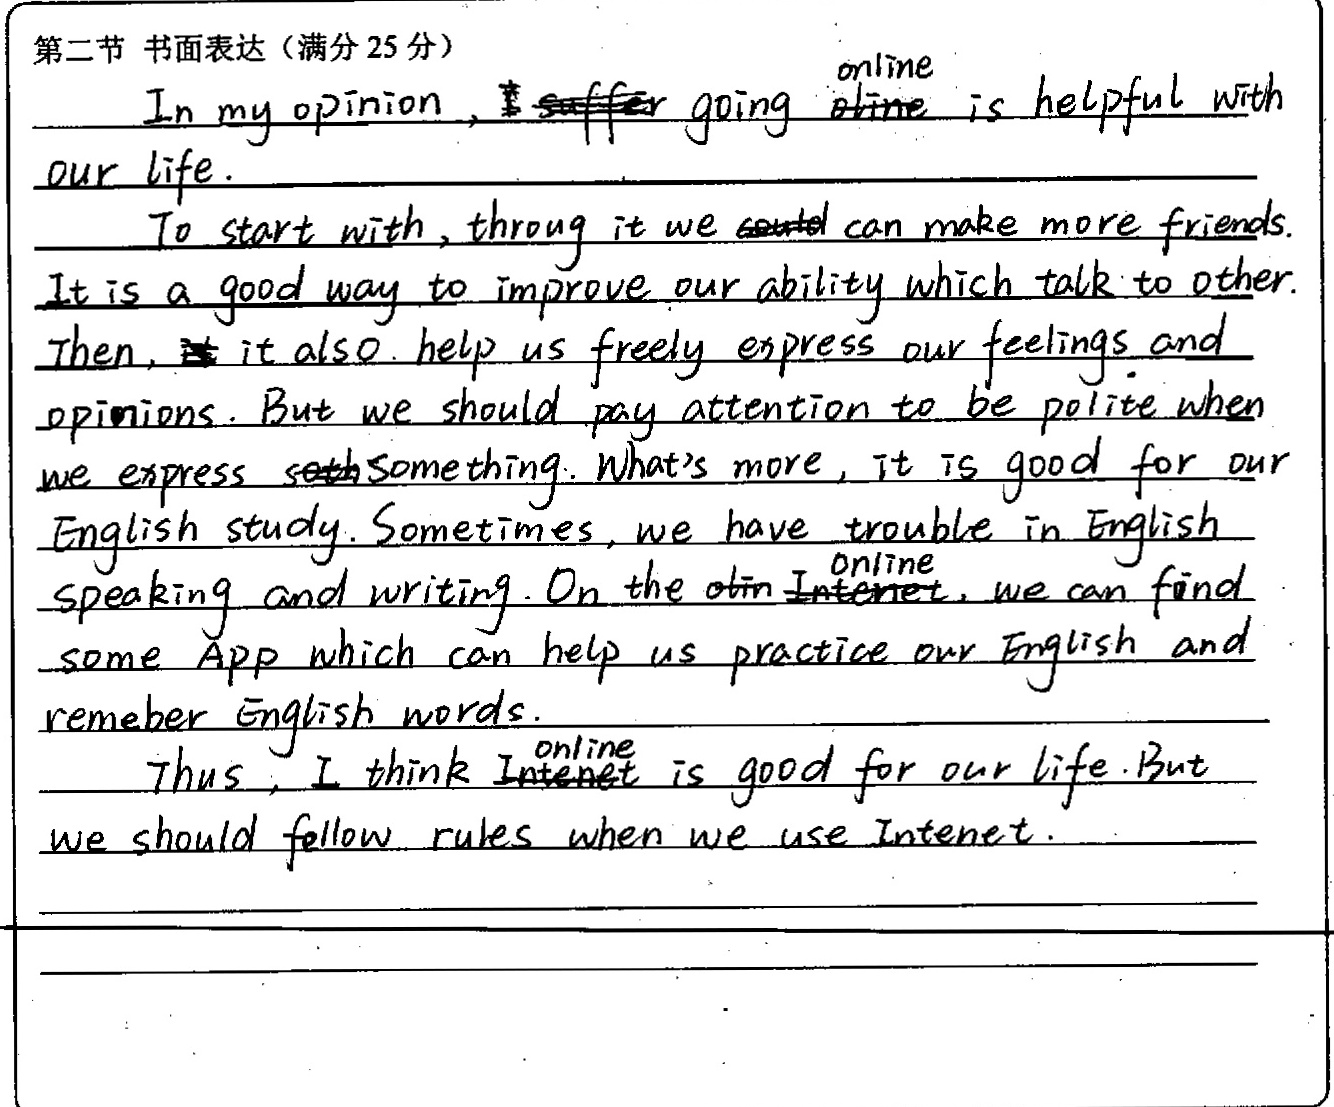 第二节 书面表达（满分 25 分）
In my opinion, going online is helpful with
our life.
To start with, throug it we can make more friends.
It is a good way to improve our ability which talk to other.
Then, it also help us freely express our feelings and
opinions. But we should pay attention to be polite when
we express something. What's more, it is good for our
English study. Sometimes, we have trouble in English
speaking and writing. On the online, we can find
some App which can help us practice our English and
remeber English words.
Thus, I think online is good for our life. But
we should fellow rules when we use Intenet.